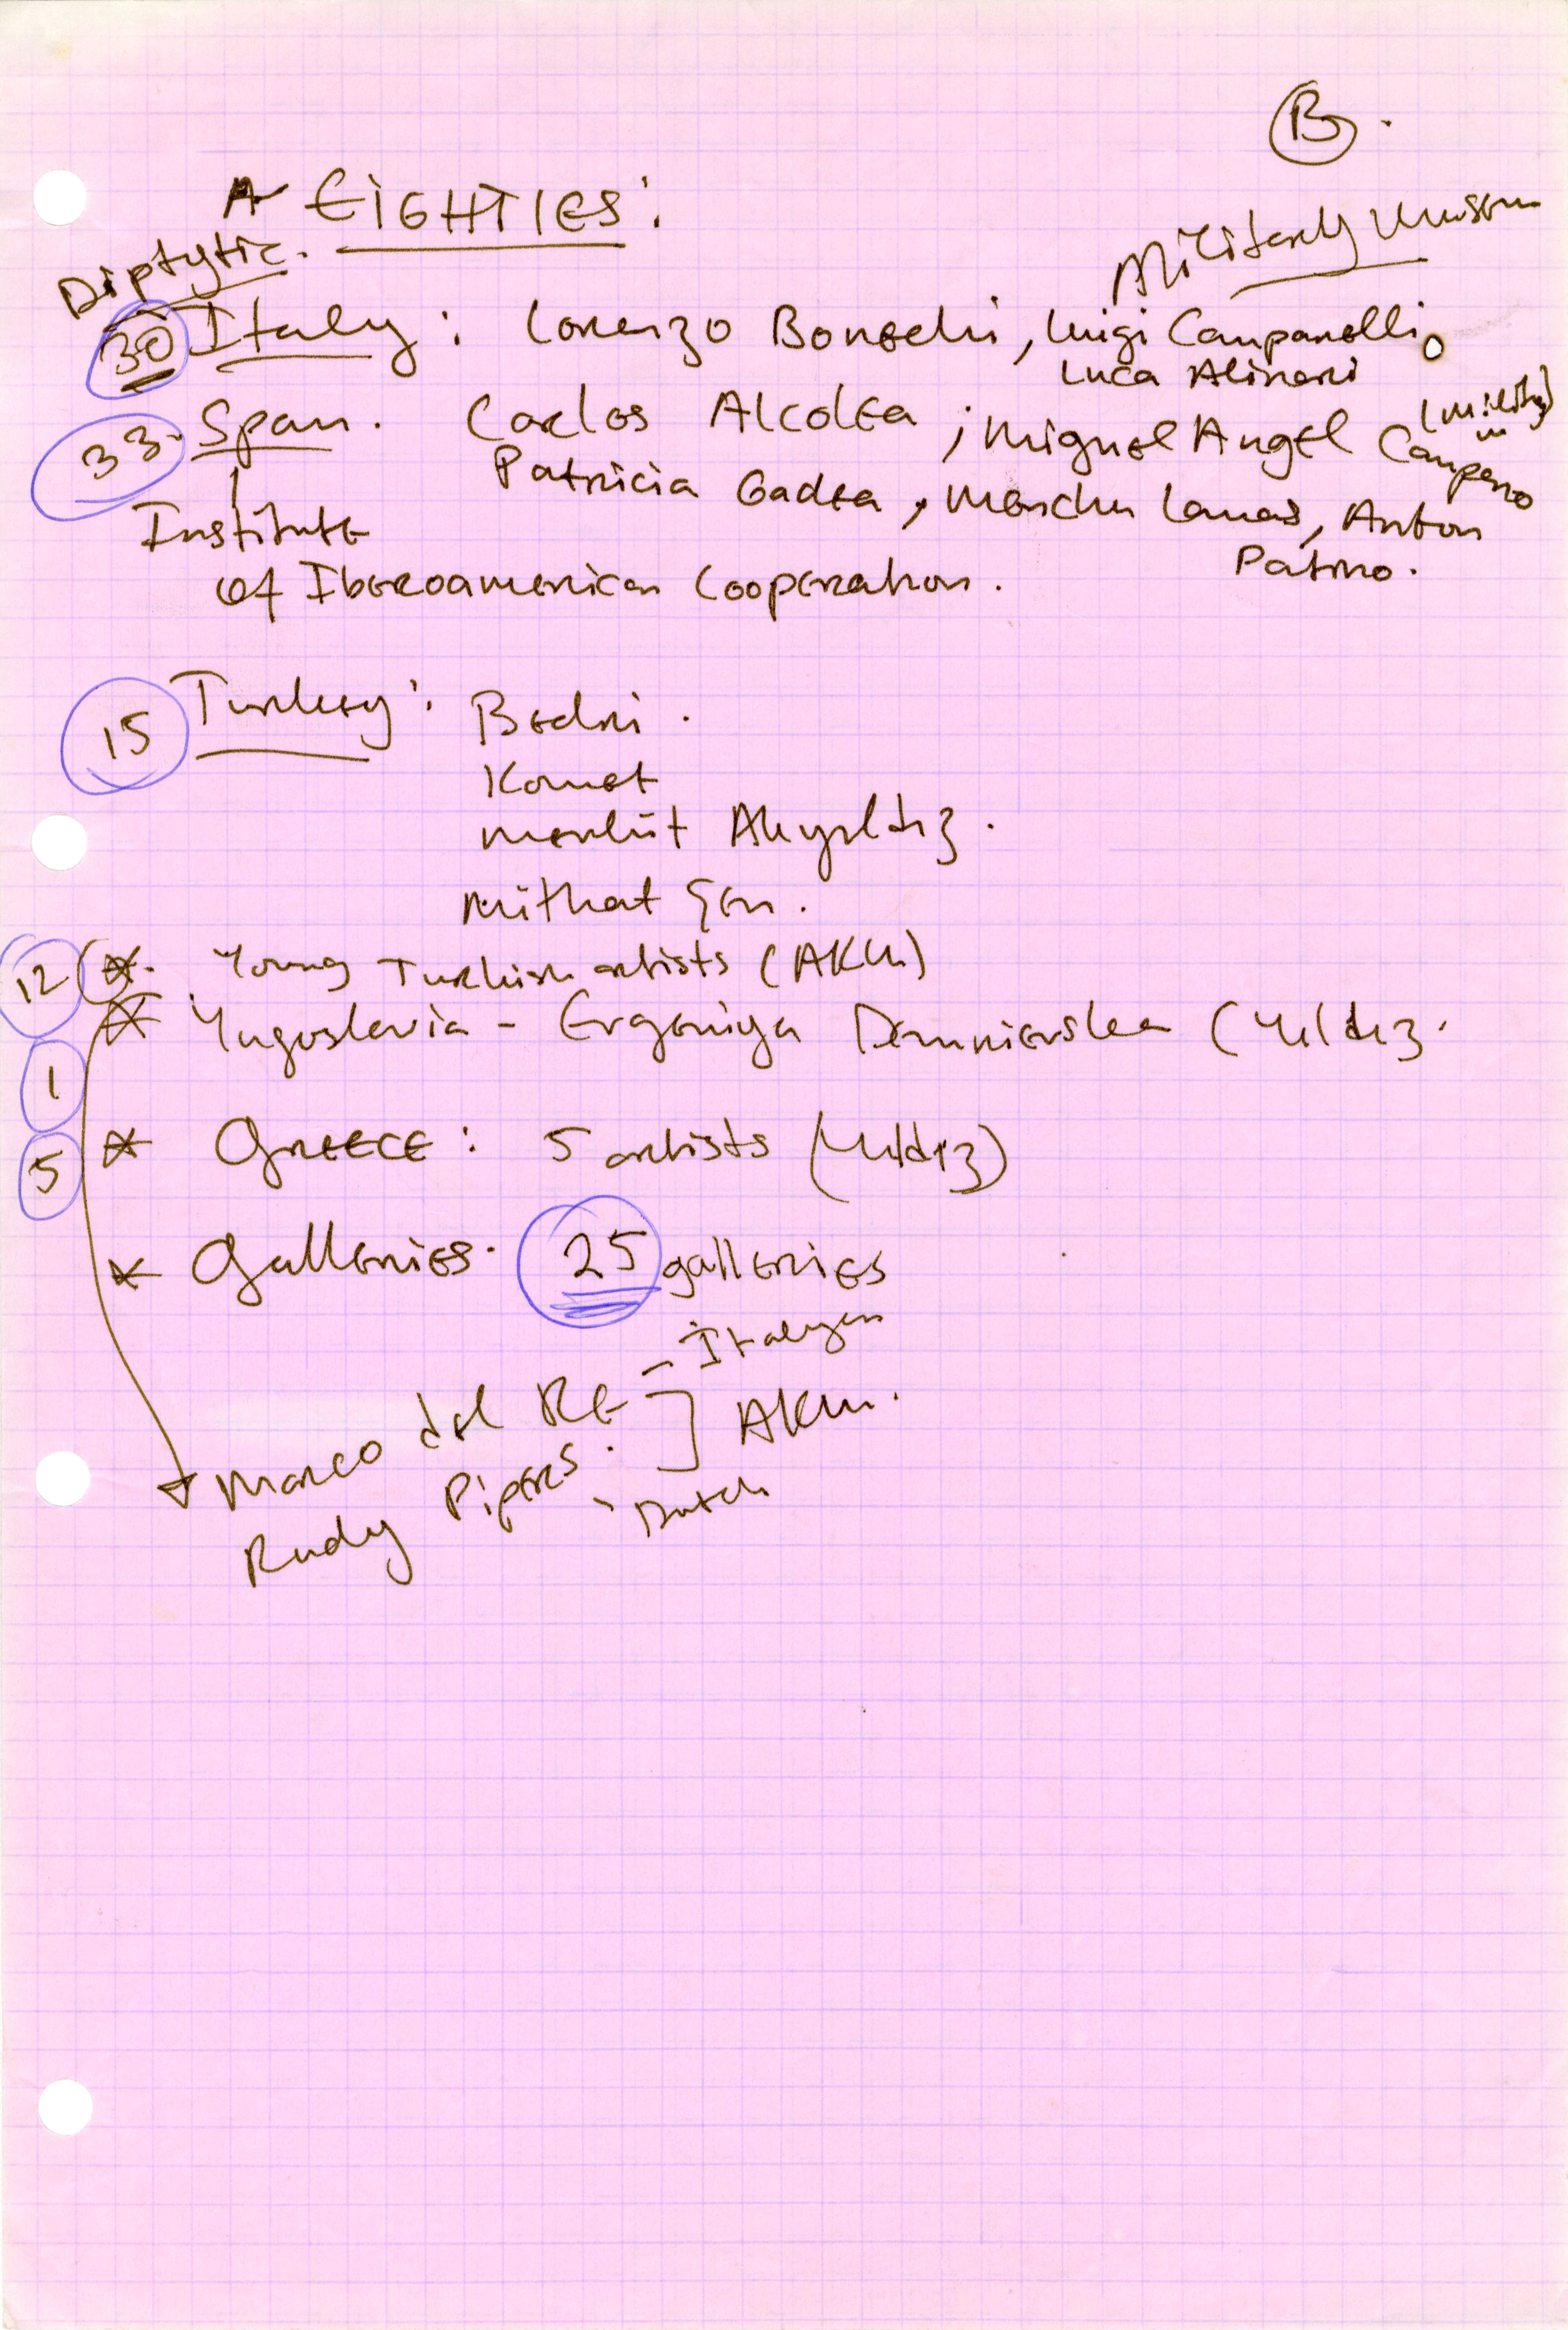 B.
A EIGHTIES:
Military Museum
Diptytic.
30 Italy: Lorenzo Bonechi, Luigi Campanelli,
Luca Alinari
33. Span. Carlos Alcolea, Miguel Angel Campano
Patricia Gadea, Menchu Lamas, Anton
Patino.
Institute
of Iberoamerican Cooperation.
15 Turkey: Bedri.
Komet
Mevlüt Akyıldız.
Mithat Şen.
12 Young Turkish artists (AKM)
1 Yugoslavia - Evgeniya Demnievska (Yıldız.
5 GREECE: 5 artists (Yıldız)
Galleries. 25 galleries
Marco del RE - İtalyan
Rudy Pijpers. - Dutch
AKM.